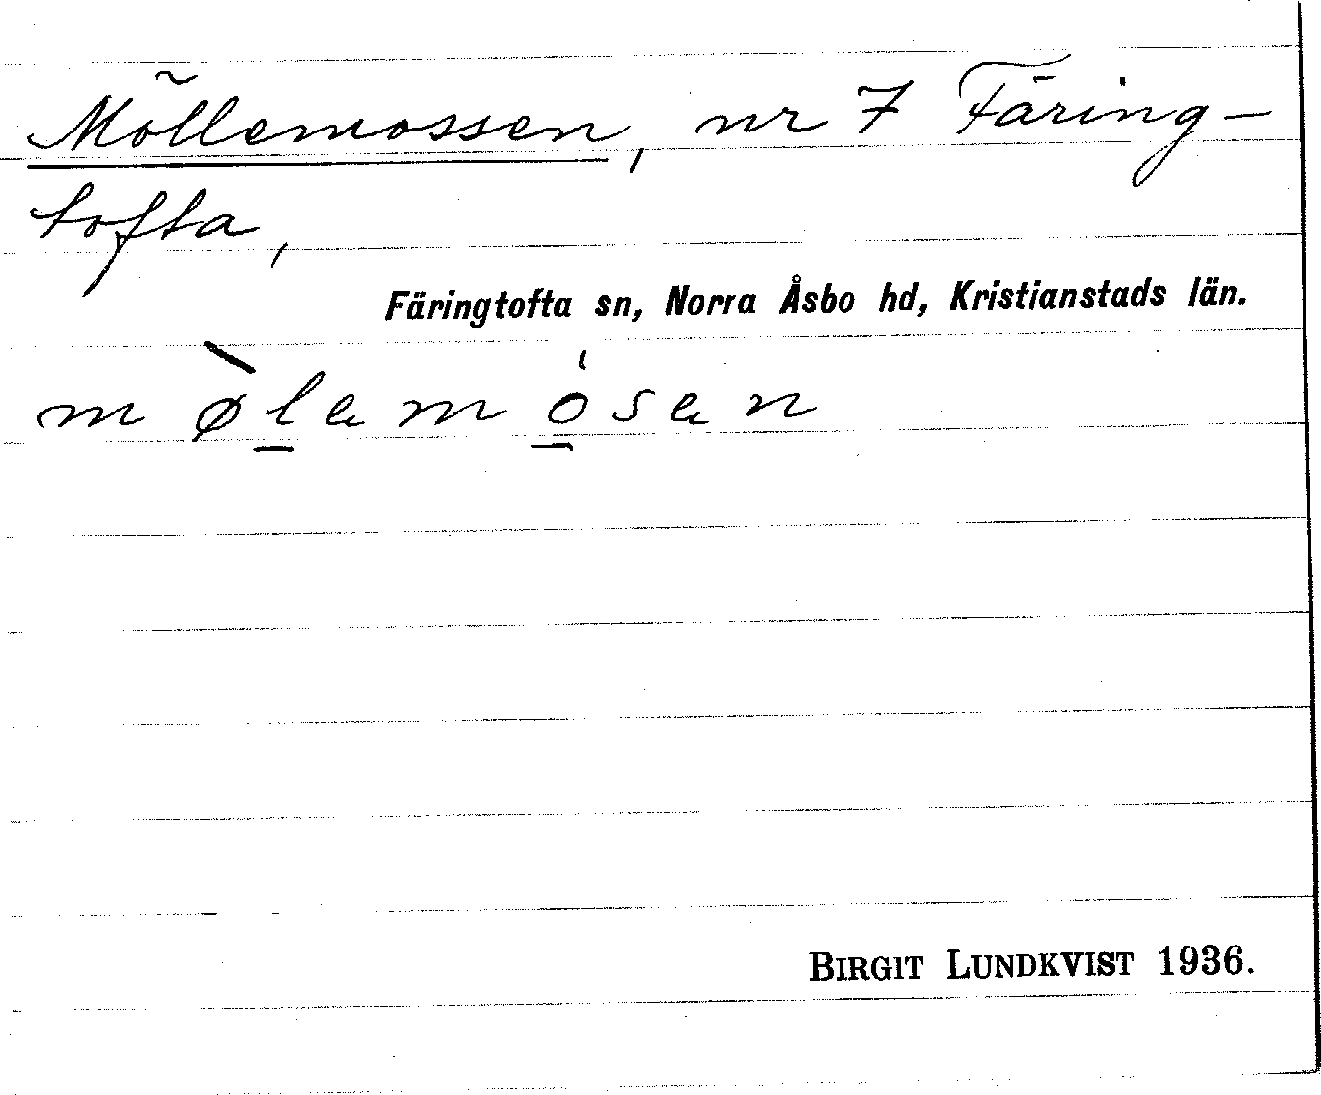 Möllemossen, nr 7 Färing-
tofta,
Färingtofta sn, Norra Åsbo hd, Kristianstads län.
mø̀lamósan
BIRGIT LUNDKVIST 1936.